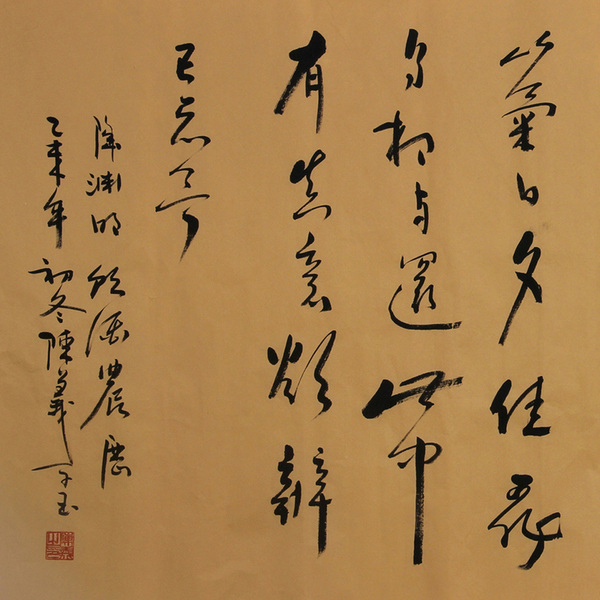 山氣日夕佳飛
鳥相與還此中
有真意欲辨
已忘言
陶渊明饮酒農歷
乙未年初冬陳義